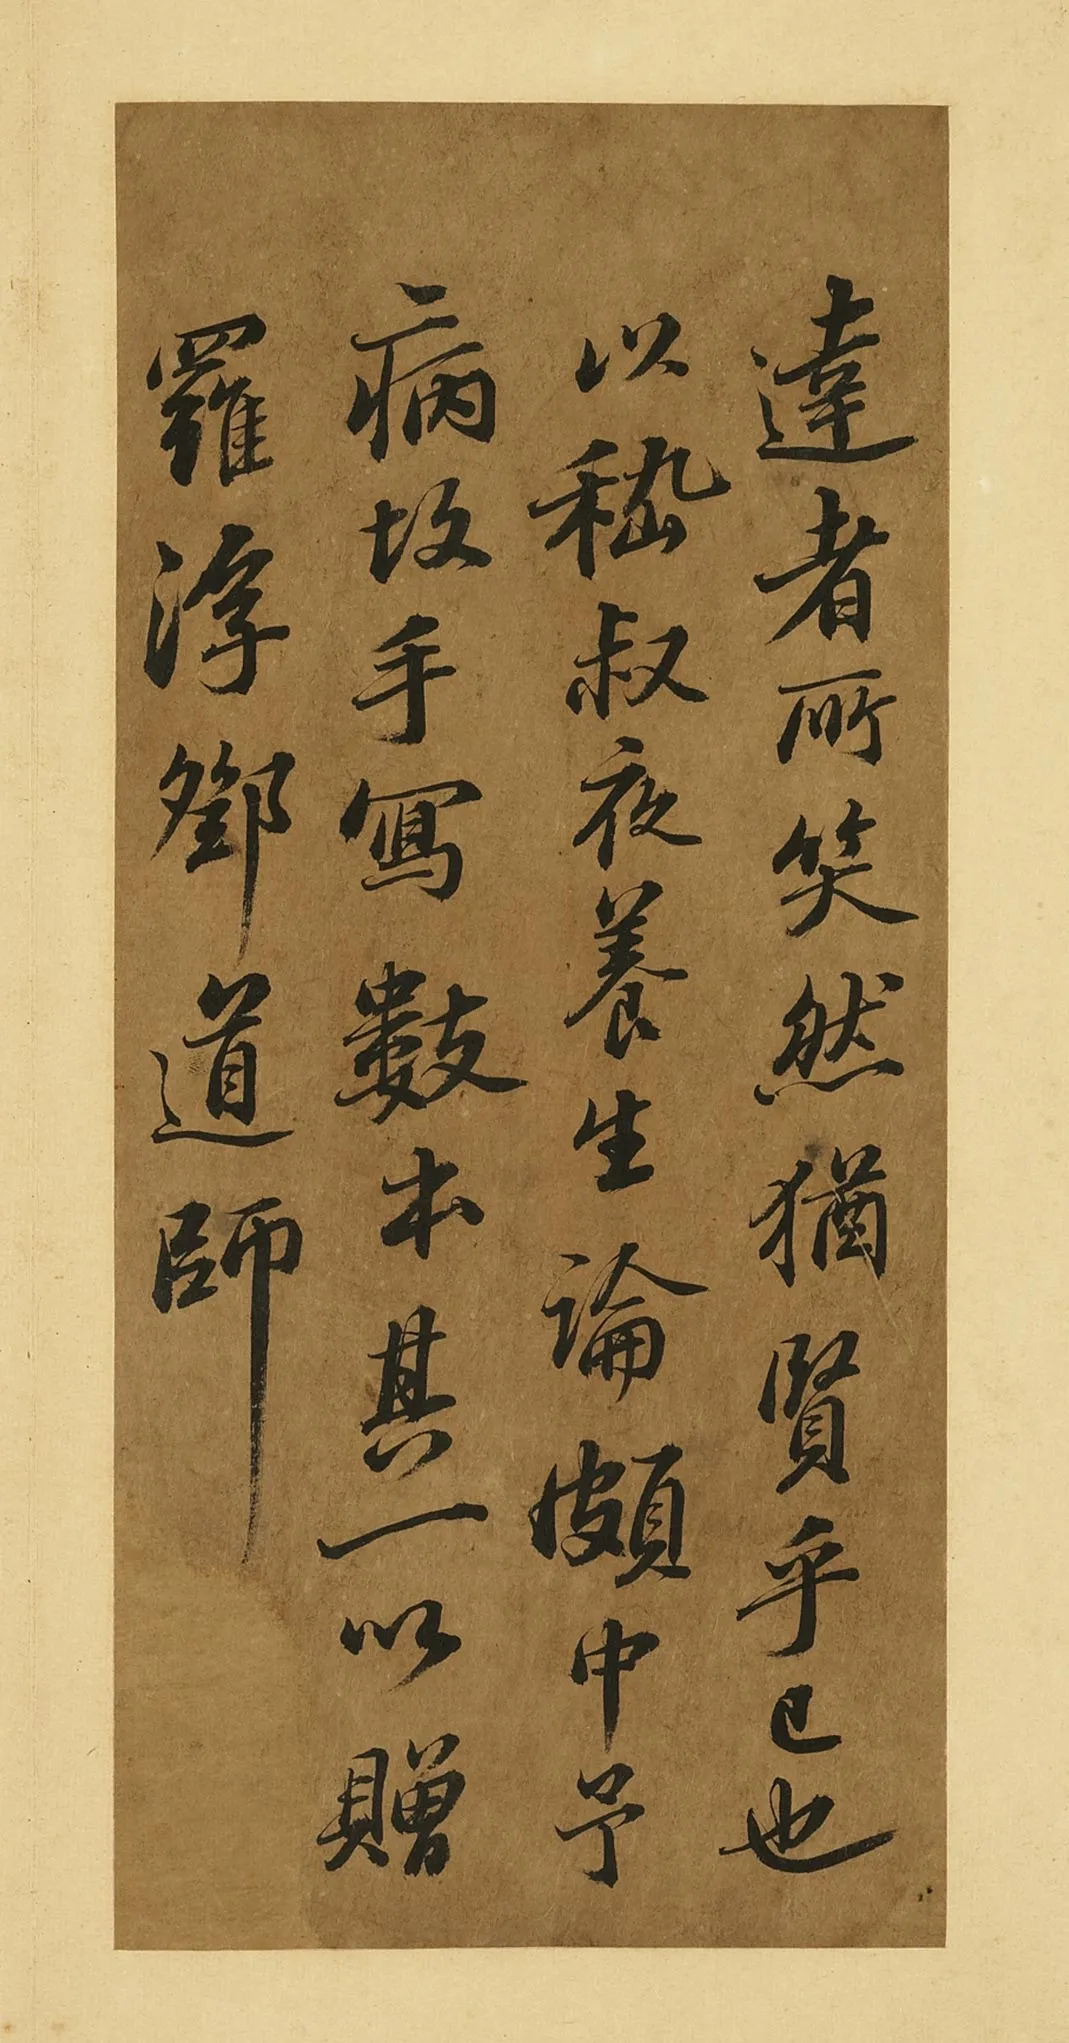 達者所笑然猶賢乎已也
以嵇叔夜養生論頗中予
病故手寫數本其一以贈
羅浮鄧道師